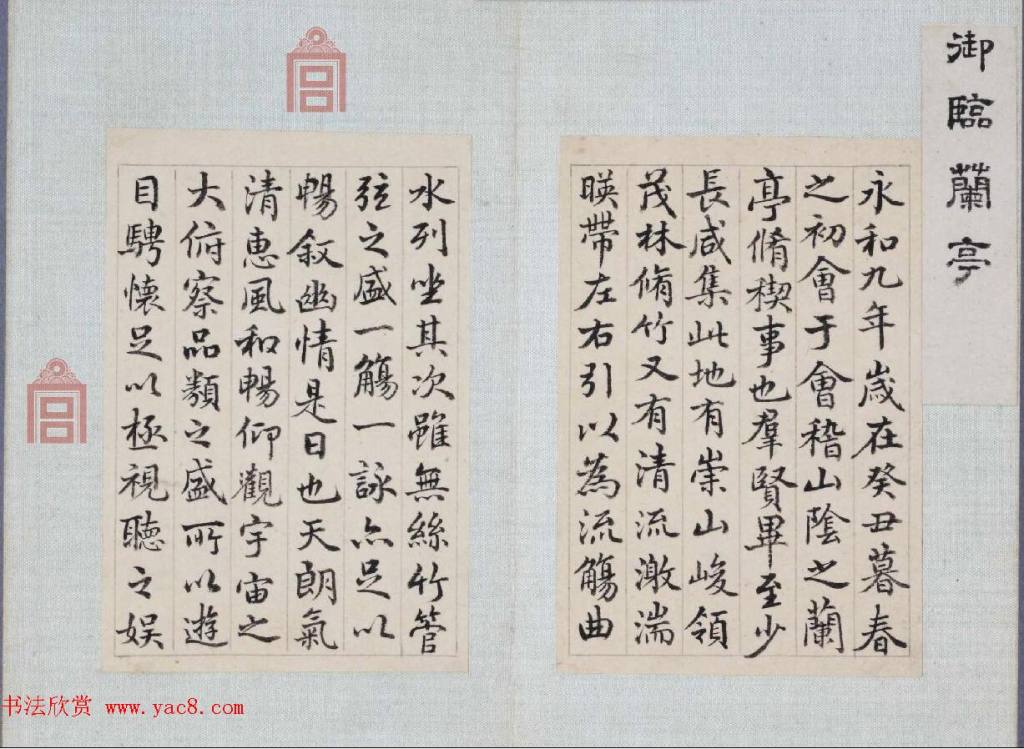 御臨蘭亭
永和九年歲在癸丑暮春
之初會于會稽山陰之蘭
亭脩稧事也羣賢畢至少
長咸集此地有崇山峻領
茂林脩竹又有清流激湍
暎帶左右引以為流觴曲
水列坐其次雖無絲竹管
弦之盛一觴一詠亦足以
暢叙幽情是日也天朗氣
清惠風和暢仰觀宇宙之
大俯察品類之盛所以遊
目騁懷足以極視聽之娱
书法欣赏 www.yac8.com